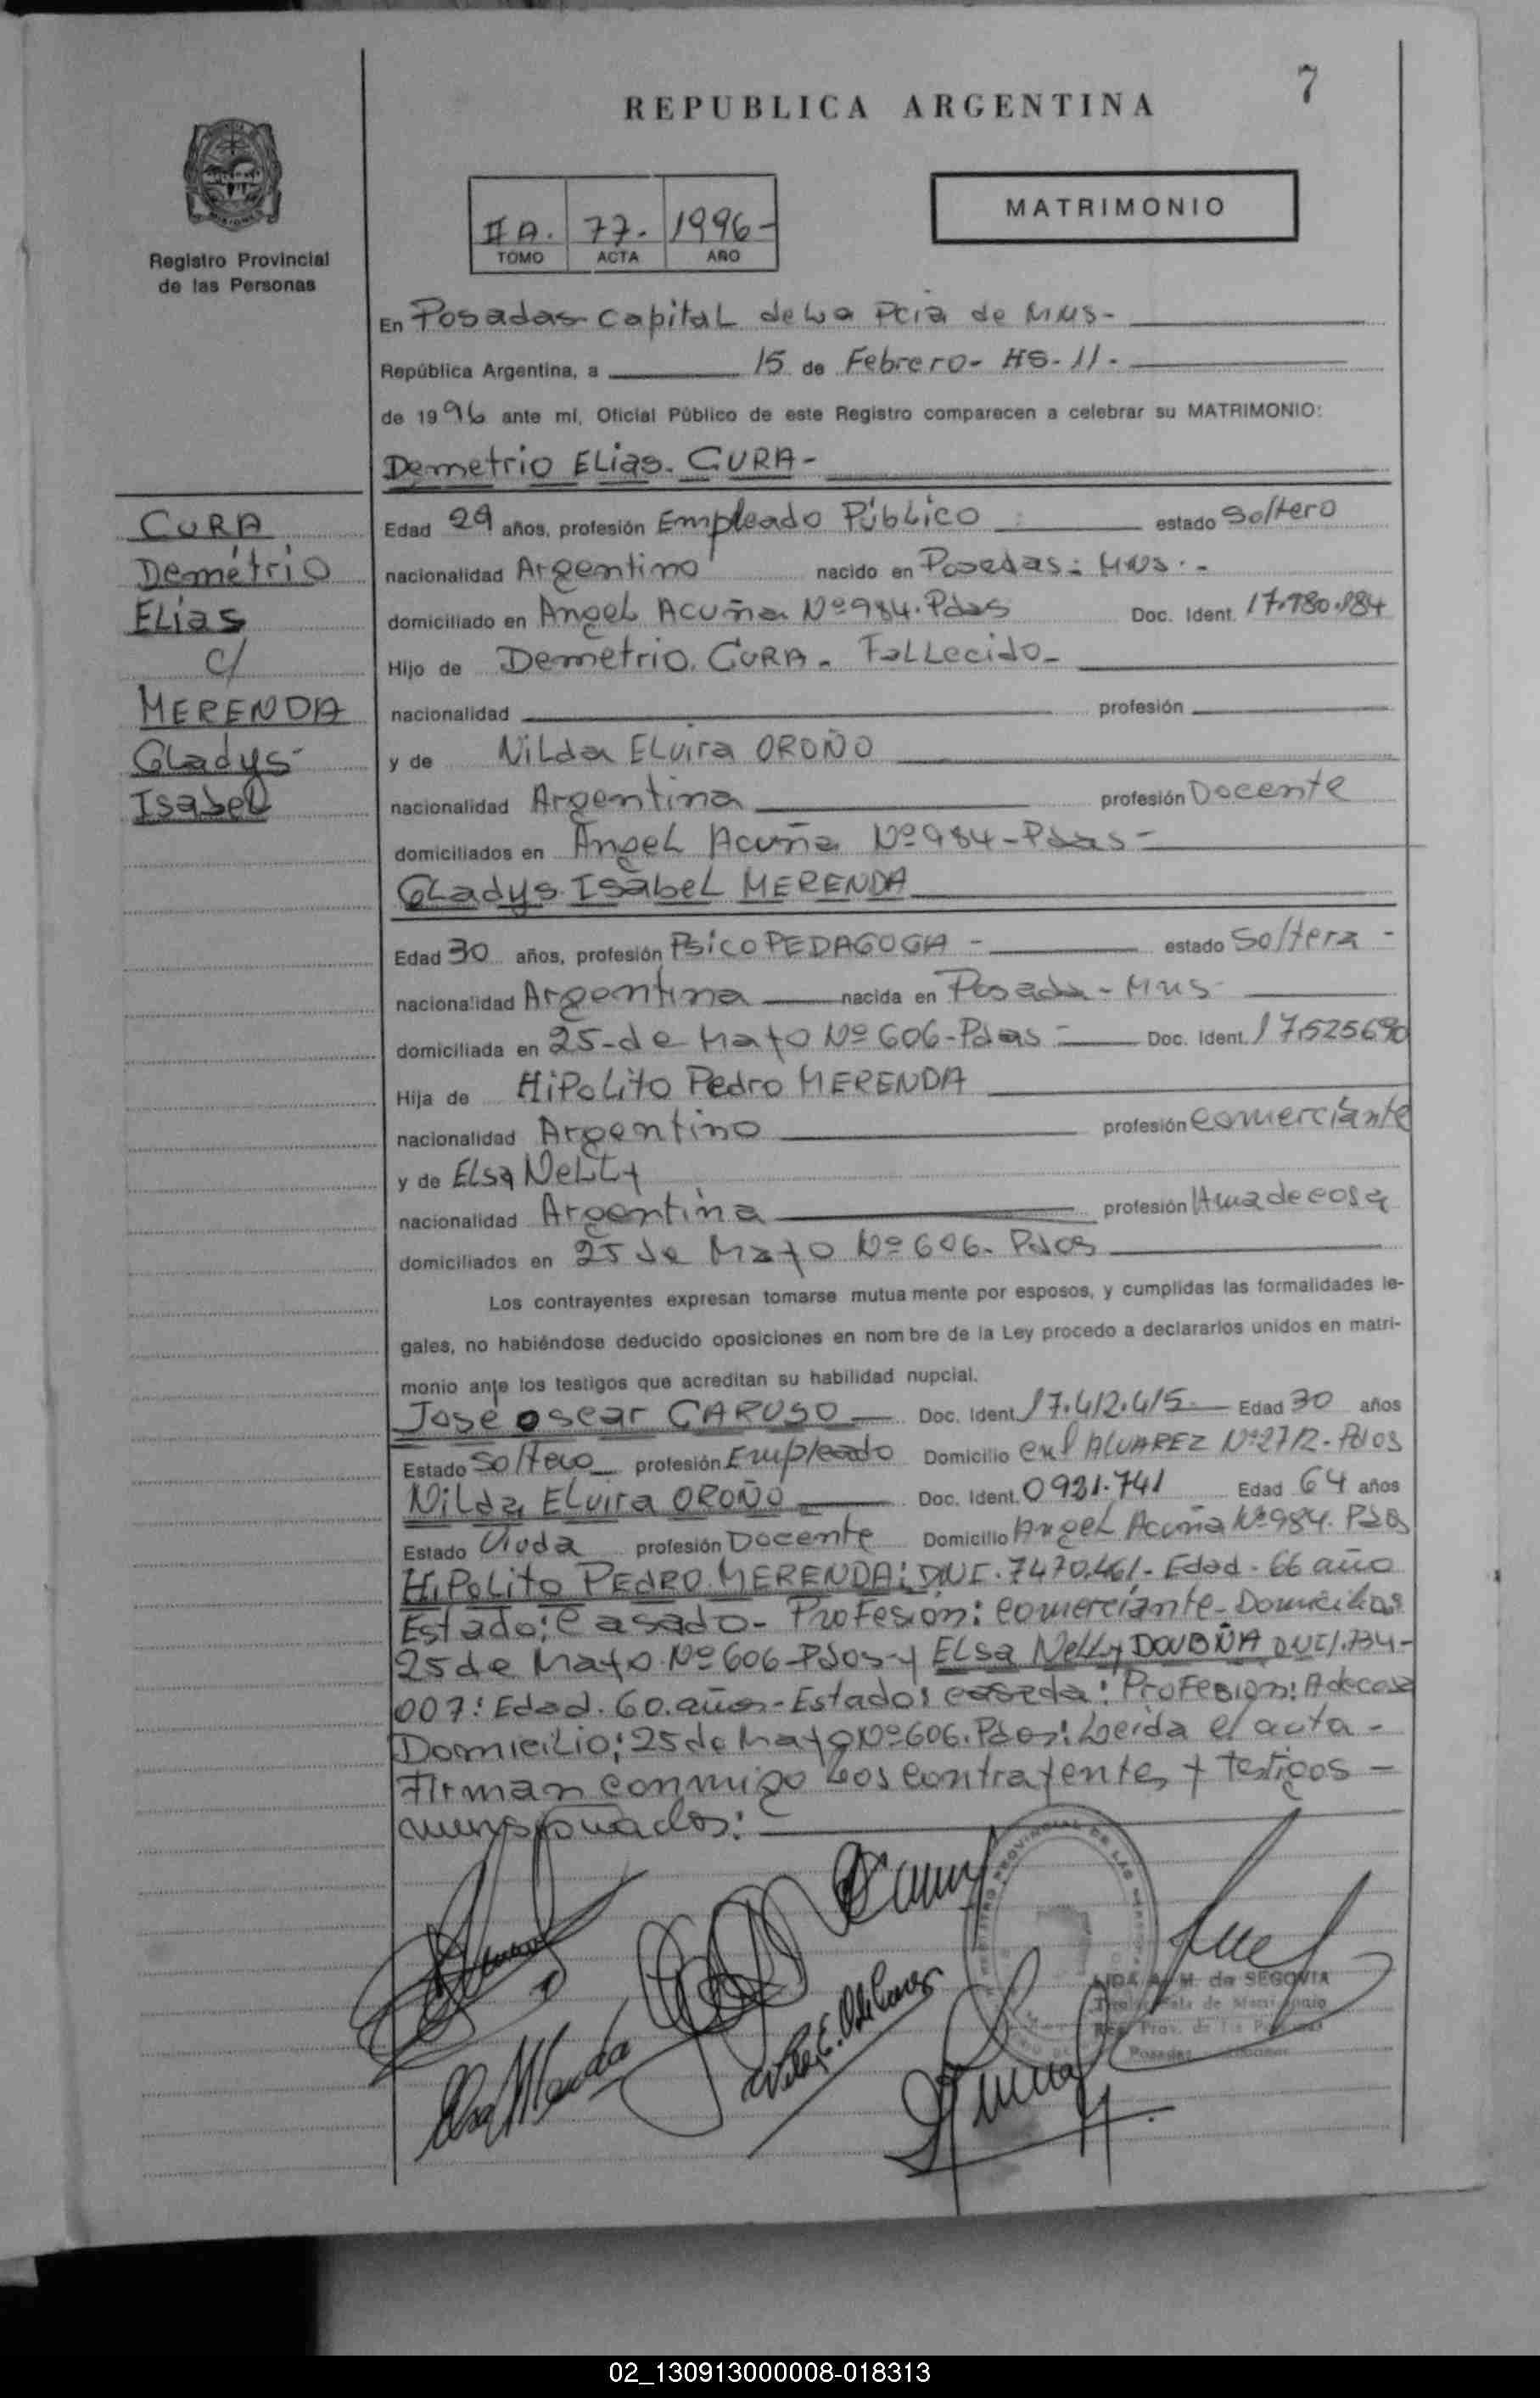 7
REPUBLICA ARGENTINA
MATRIMONIO
II A. 77. 1996-
TOMO ACTA AÑO
Registro Provincial
de las Personas
En Posadas capital de La Pcia de MNS-
República Argentina, a 15 de Febrero- HS- 11-
de 1996 ante mí, Oficial Público de este Registro comparecen a celebrar su MATRIMONIO:
Demetrio ELias. CURA-
CURA
Demetrio
ELias
c/
MERENDA
GLadys
IsabeL
Edad 29 años, profesión Empleado PúbLico estado Soltero
nacionalidad Argentino nacido en Posadas- MNS.-
domiciliado en AngeL Acuña Nº984. Pdas Doc. Ident. 17.980.984
Hijo de Demetrio. CURA. FaLLecido-
nacionalidad profesión
y de NiLda ELvira OROÑO
nacionalidad Argentina profesión Docente
domiciliados en AngeL Acuña Nº984-Pdas-
GLadys. IsabeL MERENDA
Edad 30 años, profesión PsicoPEDAGOGA - estado Soltera -
nacionalidad Argentina nacida en Posada- MNS-
domiciliada en 25-de Mayo Nº 606-Pdas- Doc. Ident. 17.525690
Hija de HiPoLito Pedro MERENDA
nacionalidad Argentino profesión comerciante
y de ELsa NeLLy
nacionalidad Argentina profesión Ama de casa
domiciliados en 25 de Mayo Nº 606. Pdas
Los contrayentes expresan tomarse mutua mente por esposos, y cumplidas las formalidades le-
gales, no habiéndose deducido oposiciones en nom bre de la Ley procedo a declararlos unidos en matri-
monio ante los testigos que acreditan su habilidad nupcial.
José oscar CARUSO Doc. Ident. 17.412.415. Edad 30 años
Estado Soltero profesión Empleado Domicilio ALVAREZ Nº2712-Pdas
NiLda ELvira OROÑO Doc. Ident. 0921.741 Edad 64 años
Estado Viuda profesión Docente Domicilio AngeL Acuña Nº984. Pdas
HiPoLito PEDRO MERENDA: DNI. 7470.461- Edad- 66 año
Estado: casado- Profesión: comerciante- Domicilios
25 de Mayo Nº 606-Pdas-y ELsa NeLLy DOUBÑA DNI 1.734-
007: Edad. 60. años- Estado: casada: Profesión: A de casa
DomiciLio: 25 de Mayo Nº 606. Pdas: Leida el acta -
Firman conmigo Los contrayentes y testigos -
mensionados:
REGISTRO PROVINCIAL DE LAS PERSONAS
LIDA A. M. de SEGOVIA
de Matrimonio
Reg. Prov. de las Personas
Posadas - Misiones
02_130913000008-018313